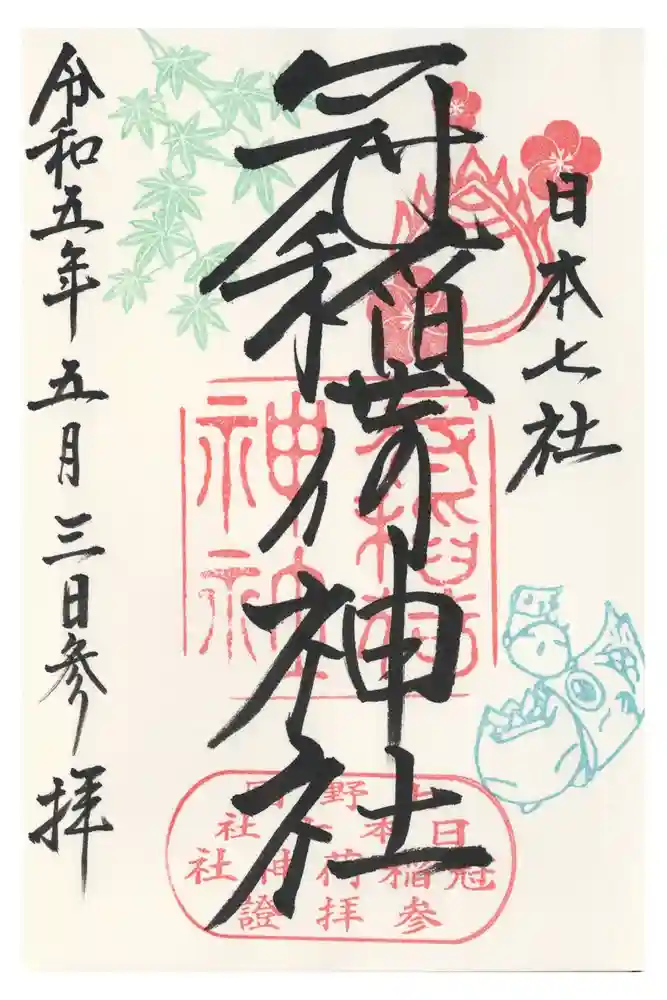 日本七社
冠稲荷神社
令和五年五月三日参拝
冠稲荷
神社
冠稲荷神社
参拝證